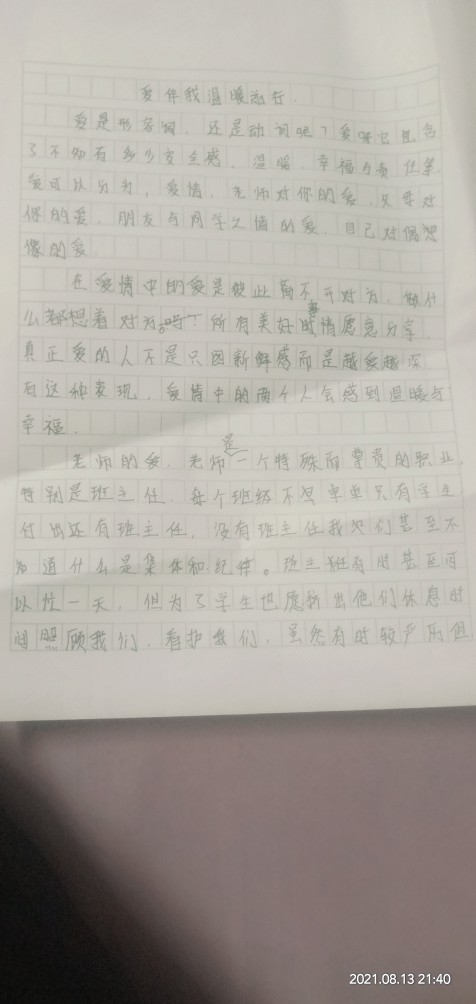 爱伴我温暖前行.
爱是形容词，还是动词呢？爱呀它包含
了不知有多少安全感、温暖、幸福与责任等.
爱可以分为，爱情，老师对你的爱，父母对
你的爱，朋友与同学之情的爱，自己对偶想
像的爱.
在爱情中的爱是彼此离不开对方，做什
么都想着对方，所有美好的事情愿意分享.
真正爱的人不是只因新鲜感而是越爱越深.
有这种表现，爱情中的两个人会感到温暖与
幸福.
老师的爱，老师是一个特殊而尊贵的职业，
特别是班主任，每个班级不是单单只有学生
付出还有班主任，没有班主任我们甚至不
知道什么是集体和纪律。班主任有时甚至可
以忙一天，但为了学生也愿拆出他们休息时
间照顾我们，看护我们，虽然有时较严厉但
2021.08.13 21:40